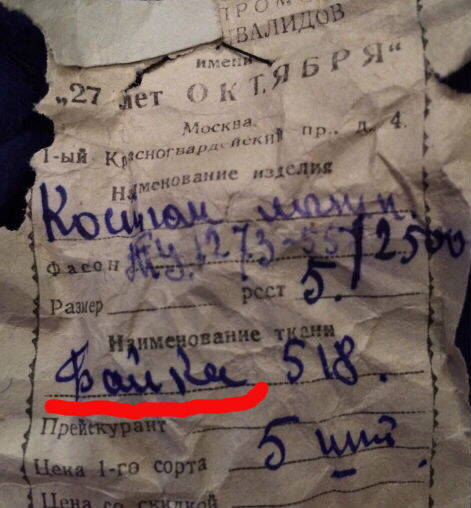 ПРОМ
ВАЛИДОВ
имени
„27 лет ОКТЯБРЯ“
Москва
1-ый Красногвардейский пр., д. 4.
Наименование изделия
Костюм
Фасон ТУ.1273-55/2500
Размер рост 5.
Наименование ткани
Байка 518.
Прейскурант
Цена 1-го сорта 5
Цена со скидкой